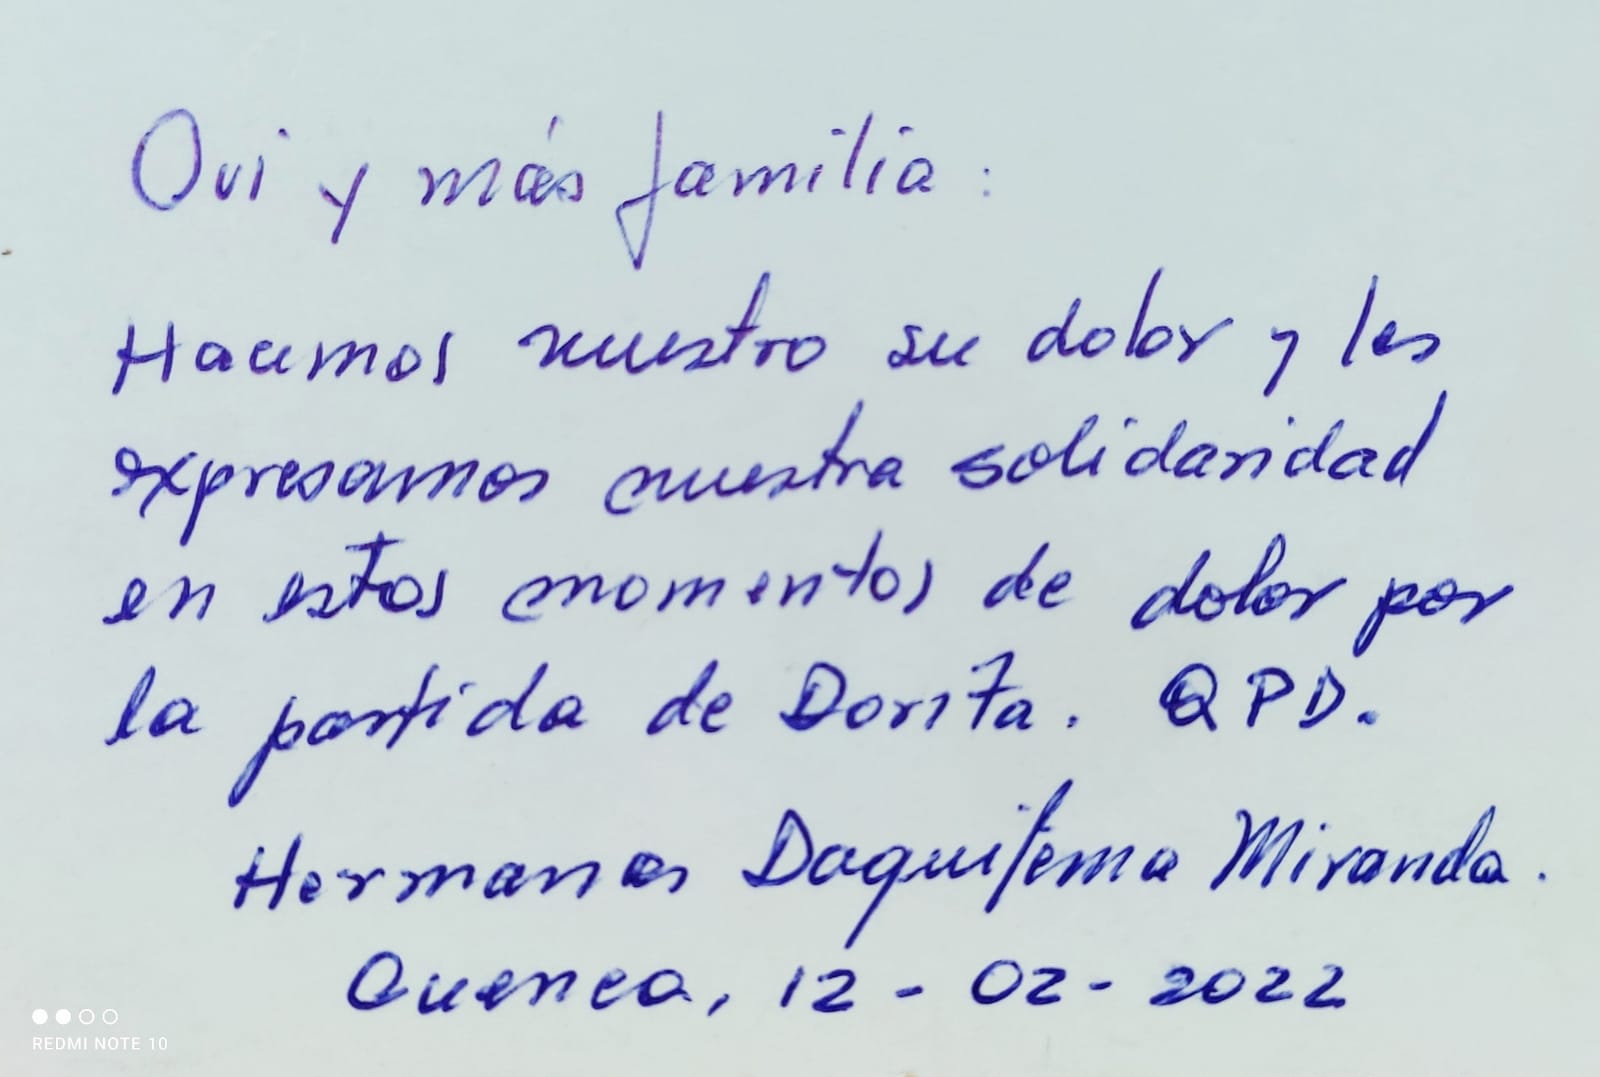 Ovi y más familia:
Hacemos nuestro su dolor y les
expresamos nuestra solidaridad
en estos momentos de dolor por
la partida de Dorita. QPD.
Hermanos Daquilema Miranda.
Cuenca, 12-02-2022
REDMI NOTE 10